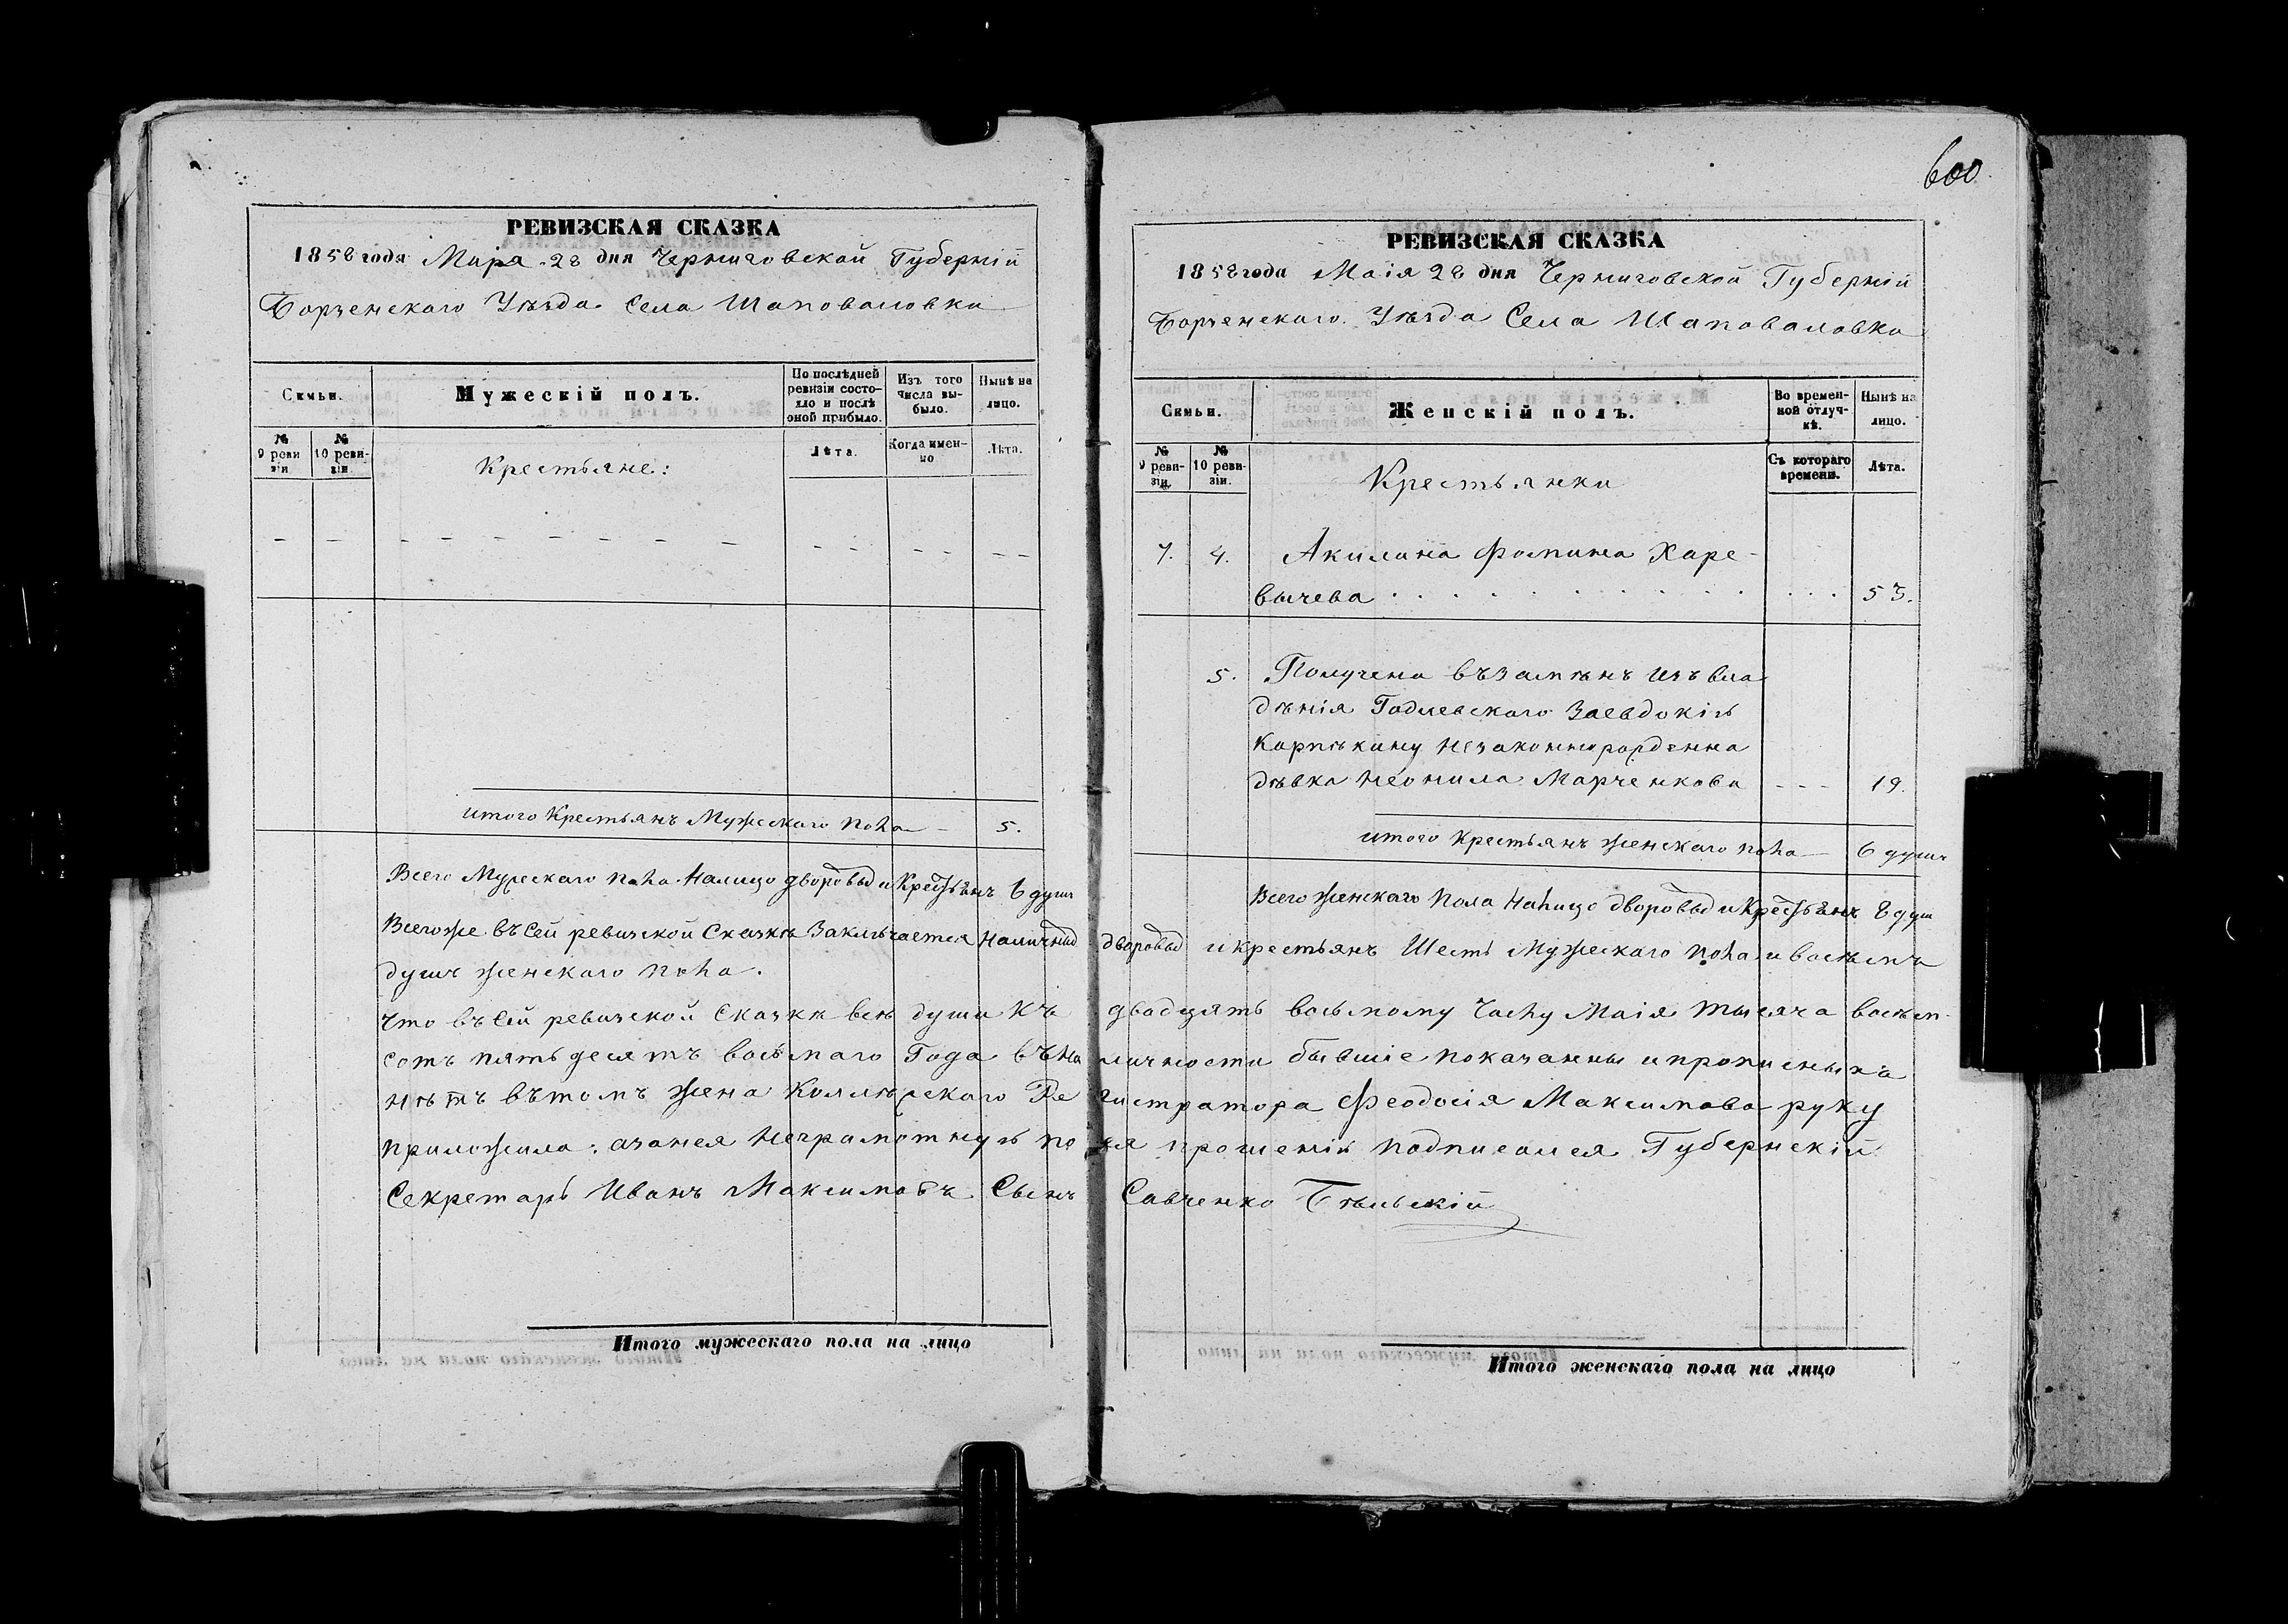 600
РЕВИЗСКАЯ СКАЗКА
1858 года Маія 28 дня Черниговской Губерніи
Борзенскаго Уѣзда Села Шаповаловки
Семьи.
Мужескій полъ.
По послѣдней ревизіи состояло и послѣ оной прибыло.
Изъ того числа выбыло.
Нынѣ на лицо.
№ 9 ревизіи
№ 10 ревизіи.
Крестьяне:
Лѣта.
Когда именно
Лѣта.
итого Крестьянъ Мужескаго пола 5.
Всего Мужескаго пола Налицо дворовыхъ и Крестьянъ 6 душъ
РЕВИЗСКАЯ СКАЗКА
1858 года Маія 28 дня Черниговской Губерніи
Борзенскаго Уѣзда Села Шаповаловки
Семьи.
Женскій полъ.
Во временной отлучкѣ.
Нынѣ на лицо.
№ 9 ревизіи.
№ 10 ревизіи.
Крестьянки
Съ котораго времени.
Лѣта.
7. 4. Акилина Фомина Харе-
вычева 53.
5. Получена възамѣнъ изъ вла
дѣнія Годлевскаго За Евдокію
Карпѣкину незаконнорожденна
дѣвка Неонила Марченкова 19.
итого Крестьянъ женскаго пола 6 душъ
Всего женскаго Пола Налицо дворовыхъ и Крестьянъ 8 душ
Всего же въ сей ревизской Сказкѣ Заключается Наличныхъ дворовыхъ и крестьянъ Шесть Мужескаго пола и восѣмъ
душъ женскаго пола.
Что въ сей ревизской Сказкѣ всѣ души къ двадцять восьмому Числу Маія тысяча восѣм-
сотъ пятьдесятъ восьмаго Года въ на личности бывшіе показанны и прописныхъ
нѣтъ въ томъ жена Коллѣжскаго Ре гистратора Феодосія Максимова руку
приложила: а за нея неграмотную по ея прошенію подписался Губернскій
Секретарь Иванъ Максимовъ Сынъ Савченко Бѣльскій
Итого мужескаго пола на лицо
Итого женскаго пола на лицо